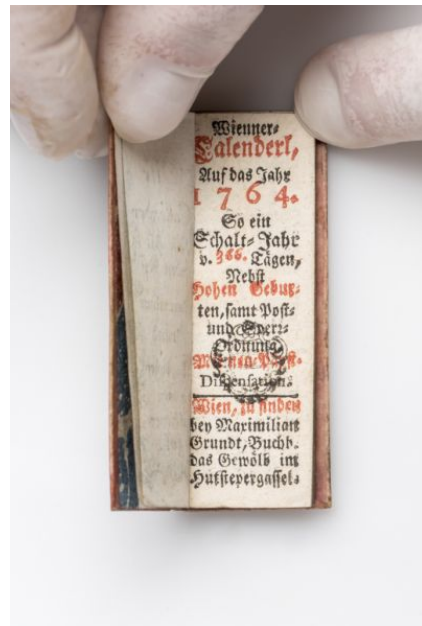 Wienner=
Calenderl,
Auf das Jahr
1764.
So ein
Schalt= Jahr
v. 366. Tägen,
Nebst
Hohen Gebur=
ten, samt Post=
und Sperr=
Ordnung
Dispensation.
Wien, zu finden
bey Maximilian
Grundt, Buchb.
das Gewölb im
Hutstepergassel.